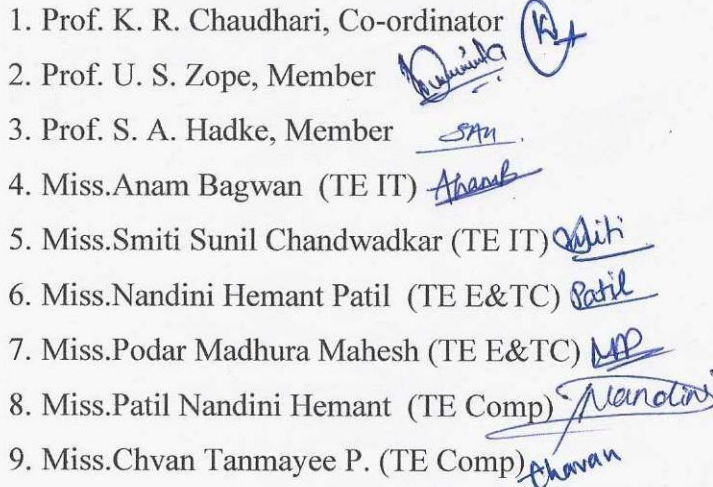 1. Prof. K. R. Chaudhari, Co-ordinator
2. Prof. U. S. Zope, Member
3. Prof. S. A. Hadke, Member SAH
4. Miss.Anam Bagwan (TE IT) AnamB
5. Miss.Smiti Sunil Chandwadkar (TE IT) Smiti
6. Miss.Nandini Hemant Patil (TE E&TC) Patil
7. Miss.Podar Madhura Mahesh (TE E&TC) MP
8. Miss.Patil Nandini Hemant (TE Comp) Nandini
9. Miss.Chvan Tanmayee P. (TE Comp) Chavan